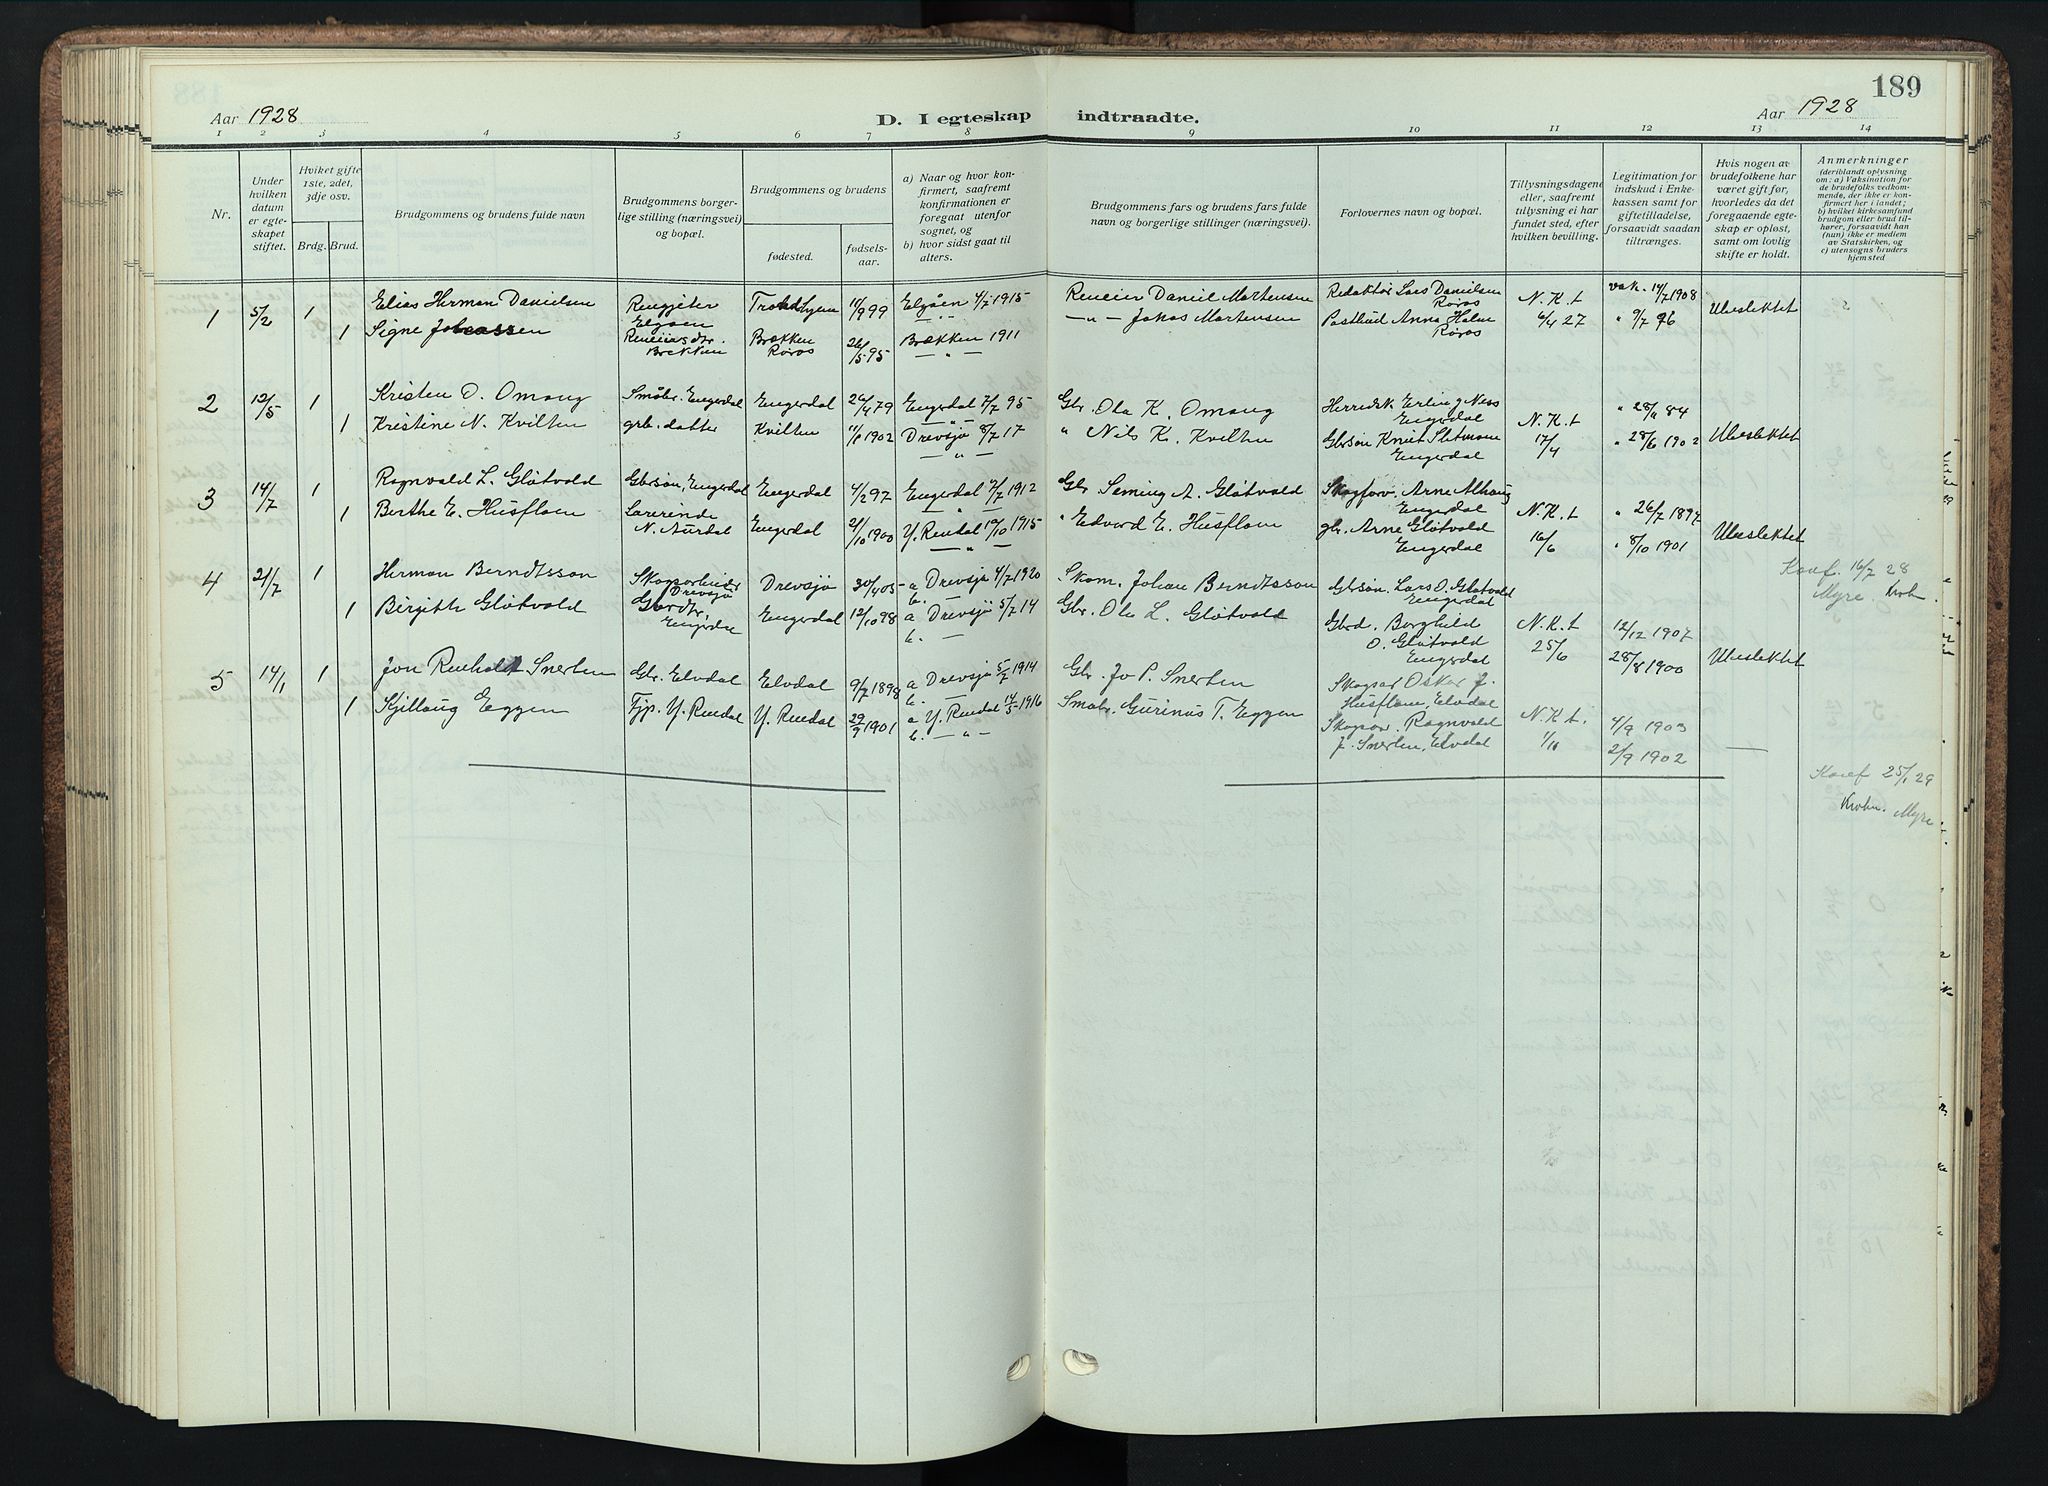 189
Aar 1928
D. I egteskap indtraadte.
Aar 1928
1 2 3 4 5 6 7 8 9 10 11 12 13 14
Nr.
Under hvilken datum er egteskapet stiftet.
Hviket gifte 1ste, 2det, 3dje osv.
Brdg. Brud.
Brudgommens og brudens fulde navn
Brudgommens borgerlige stilling (næringsvei) og bopæl.
Brudgommens og brudens
fødested.
fødselsaar.
a) Naar og hvor konfirmert, saafremt konfirmationen er foregaat utenfor sognet, og
b) hvor sidst gaat til alters.
Brudgommens fars og brudens fars fulde navn og borgerlige stillinger (næringsvei).
Forlovernes navn og bopæl.
Tillysningsdagene eller, saafremt tillysning ei har fundet sted, efter hvilken bevilling.
Legitimation for indskud i Enkekassen samt for giftetilladelse, forsaavidt saadan tiltrænges.
Hvis nogen av brudefolkene har været gift før, hvorledes da det foregaaende egteskap er opløst, samt om lovlig skifte er holdt.
Anmerkninger (deriblandt oplysning om: a) Vaksination for de brudefolks vedkommende, der ikke er konfirmert her i landet; b) hvilket kirkesamfund brudgom eller brud tilhører, forsaavidt han (hun) ikke er medlem av Statskirken, og c) utensogns bruders hjemsted
1 5/2 1 Elias Herman Danielsen Rengjeter Elgåen Trondhjem 11/9 99 Elgåen 4/7 1915 Reneier Daniel Mortensen Redaktør Lars Danielsen Røros N. K. t vak. 14/7 1908 Ubeslektet
1 Signe Reneiersdtr. Brekken Brækken Røros 26/5 95 Brækken 1911 — " — — " — Jakob Mortensen Postbud Anna Holm Røros 6/4 27 " 9/7 96
2 12/5 1 Kristen O. Omang Småbr. Engerdal Engerdal 26/4 79 Engerdal 7/7 95 Gbr. Ola K. Omang Herredsk. Erling Ness Engerdal N. K. t " 28/11 84
1 Kristine N. Kvilten grb. datter Kvilten 11/1 1902 Drevsjø 8/7 17 — " — " Nils K. Kvilten Gbrsøn Knut Engerdal 17/4 " 28/6 1902 Ubeslektet
3 14/7 1 Ragnvald L. Gløtvold Gbrsøn, Engerdal Engerdal 4/2 97 Engerdal 7/7 1912 Gbr Seming A. Gløtvold Skogforv. Arne Engerdal N. K. t " 26/7 1897
1 Berthe E. Husfloen Lærerinde N. Aurdal Engerdal 21/10 1900 Y. Rendal 10/10 1915 — " — " Edvard E. Husfloen gbr. Arne Gløtvold Engerdal 16/6 " 8/10 1901 Ubeslektet
4 21/7 1 Herman Berndtsson Skogsarbeider Drevsjø Drevsjø 30/4 05 a Drevsjø 4/7 1920 b. Skom. Johan Berndtsson Gbrsøn. Lars O. Gløtvold Engerdal N. K. t 12/12 1907 Konf. 16/7 28
1 Birgith Gløtvold Gårdtr. Engerdal Engerdal 12/10 98 a Drevsjø 5/7 14 b. — Gbr. Ola L. Gløtvold Gbrd. Borghild O. Gløtvold Engerdal 25/6 28/8 1900 Ubeslektet Myre. Krohn.
5 14/1 1 Jon Renholdt Snerten Gbr. Elvdal Elvdal 9/7 1898 a Drevsjø 5/7 1914 b. Gbr. Jo P. Snerten Skogsar Oskar J. Husfloen, Elvdal N. K. t. 4/9 1903
1 Kjellaug Eggen Tjp. Y. Rendal Y. Rendal 29/9 1901 a Y. Rendal 14/5 1916 b. — " — Småbr. Gurinus T. Eggen Skogsar. Ragnvald J. Snerten, Elvdal 1/10 2/9 1902 —
Konf 25/1 29
Krohn. Myre